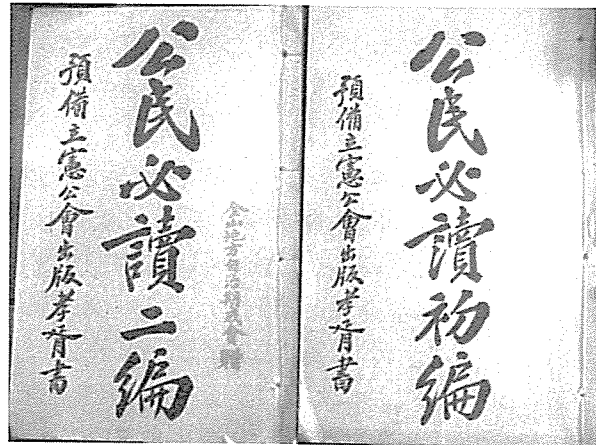 公民必讀初編
預備立憲公會出版孝胥書
金山地方自治會贈
公民必讀二編
預備立憲公會出版孝胥書